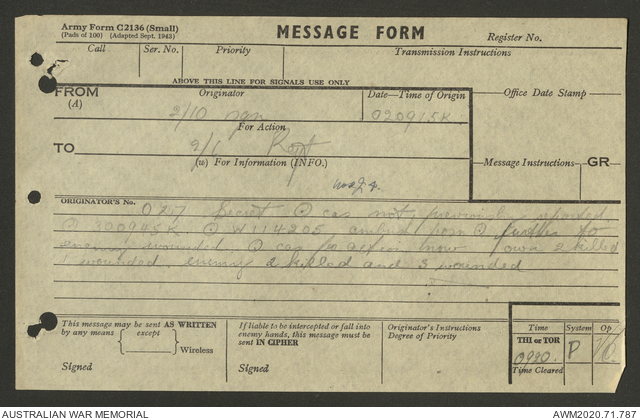 Army Form C2136 (Small)
(Pads of 100) (Adapted Sept. 1943)
MESSAGE FORM
Register No.
Call Ser. No. Priority Transmission Instructions
ABOVE THIS LINE FOR SIGNALS USE ONLY
FROM
(A)
Originator
2/10
Date—Time of Origin
020915K
Office Date Stamp
For Action
TO
2/6 Regt
(w) For Information (INFO.)
Message Instructions GR
ORIGINATOR'S No.
Secret cas not previously reported
W114205 ambush posn further to
enemy wounded cas now own 2 killed
1 wounded enemy 2 killed and 3 wounded
This message may be sent AS WRITTEN
by any means except
Wireless
Signed
If liable to be intercepted or fall into
enemy hands, this message must be
sent IN CIPHER
Signed
Originator's Instructions
Degree of Priority
Time System Op
THI or TOR
P
Time Cleared
AUSTRALIAN WAR MEMORIAL
AWM2020.71.787